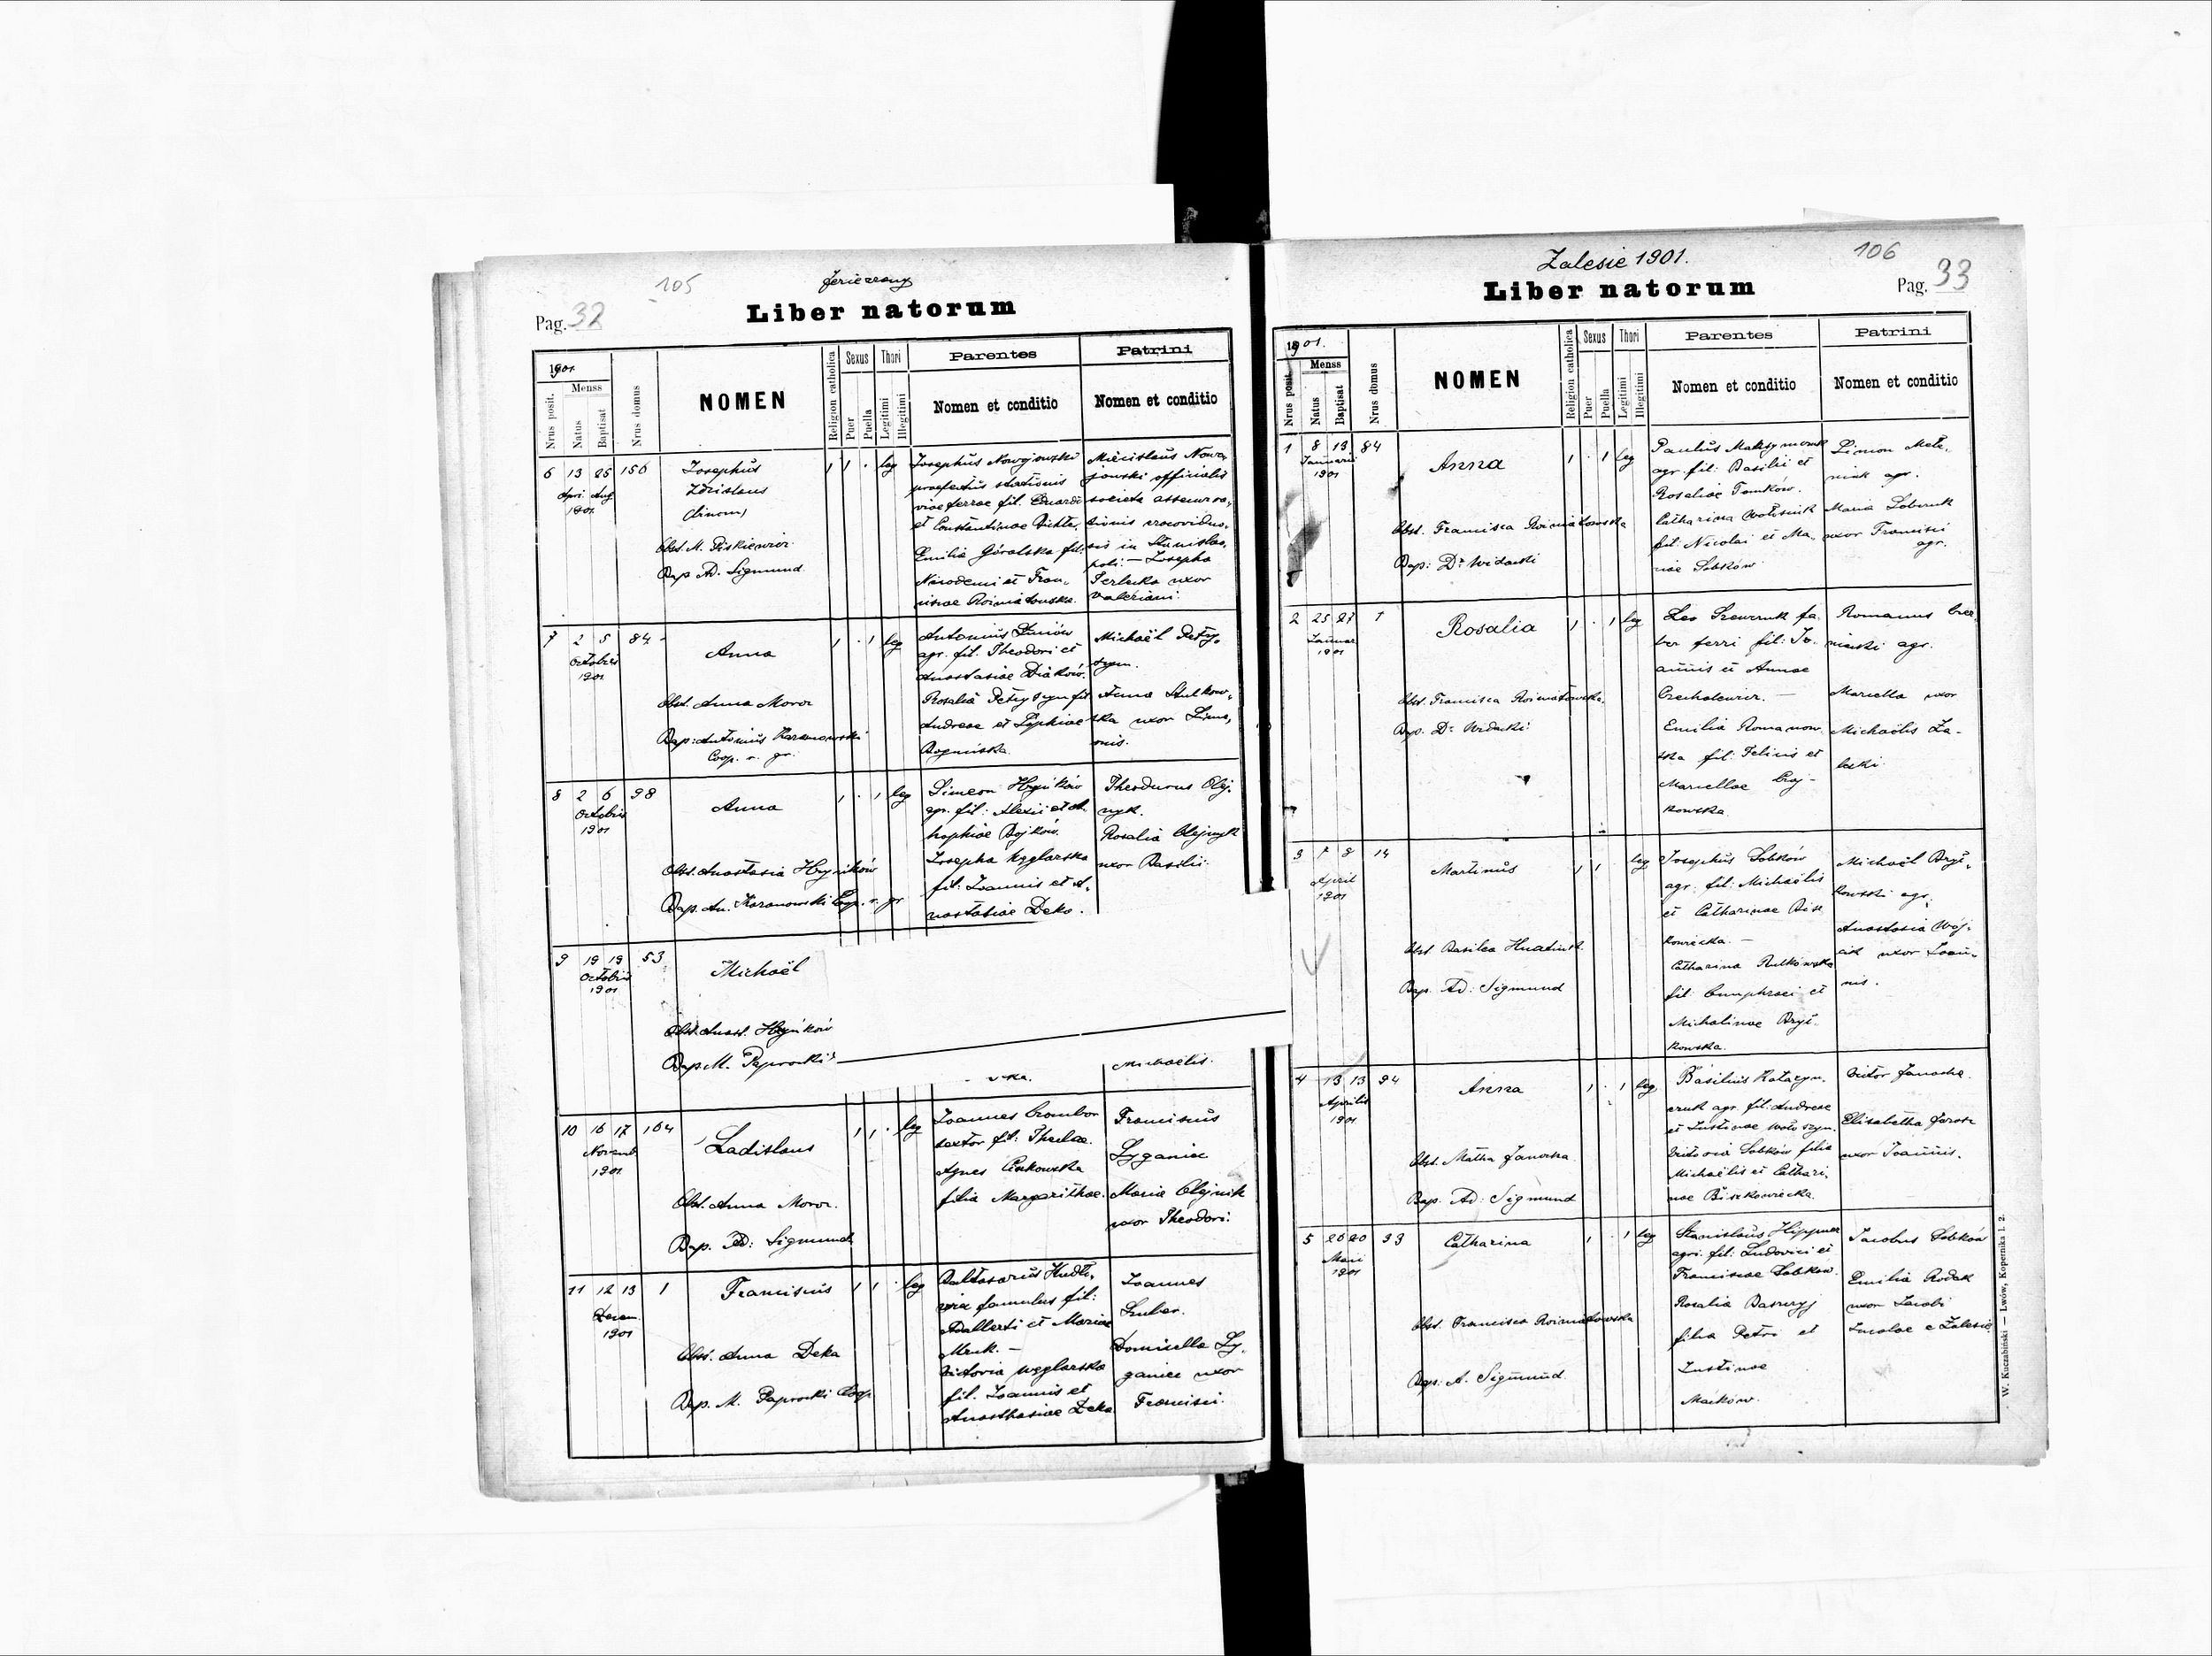 105
Jezierzany
Pag. 32
Liber natorum
1901
Menss
Nrus posit.
Natus
Baptisat
Nrus domus
NOMEN
Religion catholica
Sexus
Puer
Puella
Thori
Legitimi
Illegitimi
Parentes
Nomen et conditio
Patrini
Nomen et conditio
6 13 25 156
Apri Aug
1901
Josephus
Zdislaus
Obst. M. Piskiewicz
Bap. Ad. Sigmund
1 1 . leg
Josephus Nowojowski
praefectus stationis
viae ferrae fil. Eduardi
et Constantinae
Emilia Góralska fil:
Nicodemi et Fran-
ciscae Rozmiatowska.
Miecislaus Nowo-
jowski officialis
societa assecura-
tionis cracovien-
sis in Stanislao-
poli: — Josepha
Terlecka uxor
Valeriani.
7 2 5 84
Octobris
1901
Anna
Obst. Anna Moroz
Bap: Antonius Karanowski
Coop. r. gr.
1 . 1 leg
Antonius
agr. fil. Theodori et
Anastasiae Diaków.
Rosalia Petryszyn fil
Andreae et Sophiae
Michaël Petry-
szyn.
Anna
uxor Simo-
nis.
8 2 6 98
Octobris
1901
Anna
Obst. Anastasia Hryńków
Bap. An. Karanowski Coop. r. gr
1 . 1 leg
Simeon Hryńków
agr. fil: Alexii et
Bojków.
Josepha Węglarska
fil: Joannis et A-
nastasiae Deka.
Theodorus Olej-
nyk.
Rosalia Olejnyk
uxor Basilii.
9 19 19 53
Octobris
1901
Michaël
Obst. Anast. Hryńków
Bap. M. Paprocki
Michaëlis.
10 16 17 164
Novemb
1901
Ladislaus
Obst. Anna Moroz.
Bap. Ad: Sigmund
1 1 . leg
Joannes
sartor fil: Theclae.
Agnes
filia Margarithae.
Franciscus
Cyganica
Maria Olejnik
uxor Theodori.
11 12 13 1
Decem.
1901
Franciscus
Obst. Anna Deka
Bap. M. Paprocki Coop.
1 1 . leg
Baltasarus
famulus fil:
Adalberti et Mariae
Mruk. —
Victoria Węglarska
fil. Joannis et
Anasthasiae Deka
Joannes
Gruber.
Domicella Cy-
ganica uxor
Francisci.
Zalesie 1901.
106
Liber natorum
Pag. 33
1901.
Menss
Nrus posit.
Natus
Baptisat
Nrus domus
NOMEN
Religion catholica
Sexus
Puer
Puella
Thori
Legitimi
Illegitimi
Parentes
Nomen et conditio
Patrini
Nomen et conditio
1 8 13 84
Januarii
1901
Anna
Obst. Francisca Rozmiatowska
Bap: Dr Widacki
1 . 1 leg
Paulus Maksymowicz
agr. fil: Basilii et
Rosaliae Tomków.
Catharina
fil: Nicolai et Ma-
riae Sobków
Simon Mele-
niuk agr.
Maria
uxor Francisci
agr.
2 25 27 1
Januar
1901
Rosalia
Obst. Francisca Rozmiatowska.
Bap. Dr Widacki
1 . 1 leg
Leo Szewczuk fa-
ber ferri fil: Jo-
annis et Annae
Czechalewicz. —
Emilia Romanow-
ska fil: Felicis et
Marcellae
kowska
Romanus
agr.
Marcella uxor
Michaëlis Za-
leski.
3 7 8 14
April
1901
Martinus
Obst Basilea
Bap. Ad: Sigmund
1 1 leg
Josephus Sobków
agr. fil: Michaëlis
et Catharinae Bisz-
kowiecka. —
Catharina Rutkowska
fil: Onuphraei et
Michalinae Bryt-
kowska.
Michaël Bryt-
kowski agr.
Anastasia Wój-
cik uxor Joan-
nis.
4 13 13 94
Aprilis
1901
Anna
Obst. Martha Janocha
Bap. Ad: Sigmund
1 . 1 leg
Basilius
agr. fil: Andreae
et Justinae Wołoszyn.
Victoria Sobków filia
Michaëlis et Cathari-
nae Biszkowiecka.
Victor Janocha.
Elisabetha Jarosz
uxor Joannis.
5 20 20 33
Maii
1901
Catharina
Obst. Francisca Rozmiatowska
Bap. A. Sigmund.
1 . 1 leg
Stanislaus Hippner
agri. fil: Ludovici et
Franciscae Sobkow.
Rosalia
filia Petri et
Justinae
Maćków.
Jacobus Sobków
Emilia Rodak
uxor Jacobi
Incolae e Zalesie
W. Kuczabiński — Lwów, Kopernika l. 2.